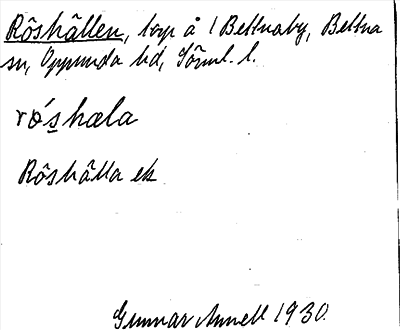 Röshällen, torp å 1 Bettnaby, Bettna
sn, Oppunda hd, Söml. l.
róshæla
Röshälla ek
Gunnar Annell 1930.